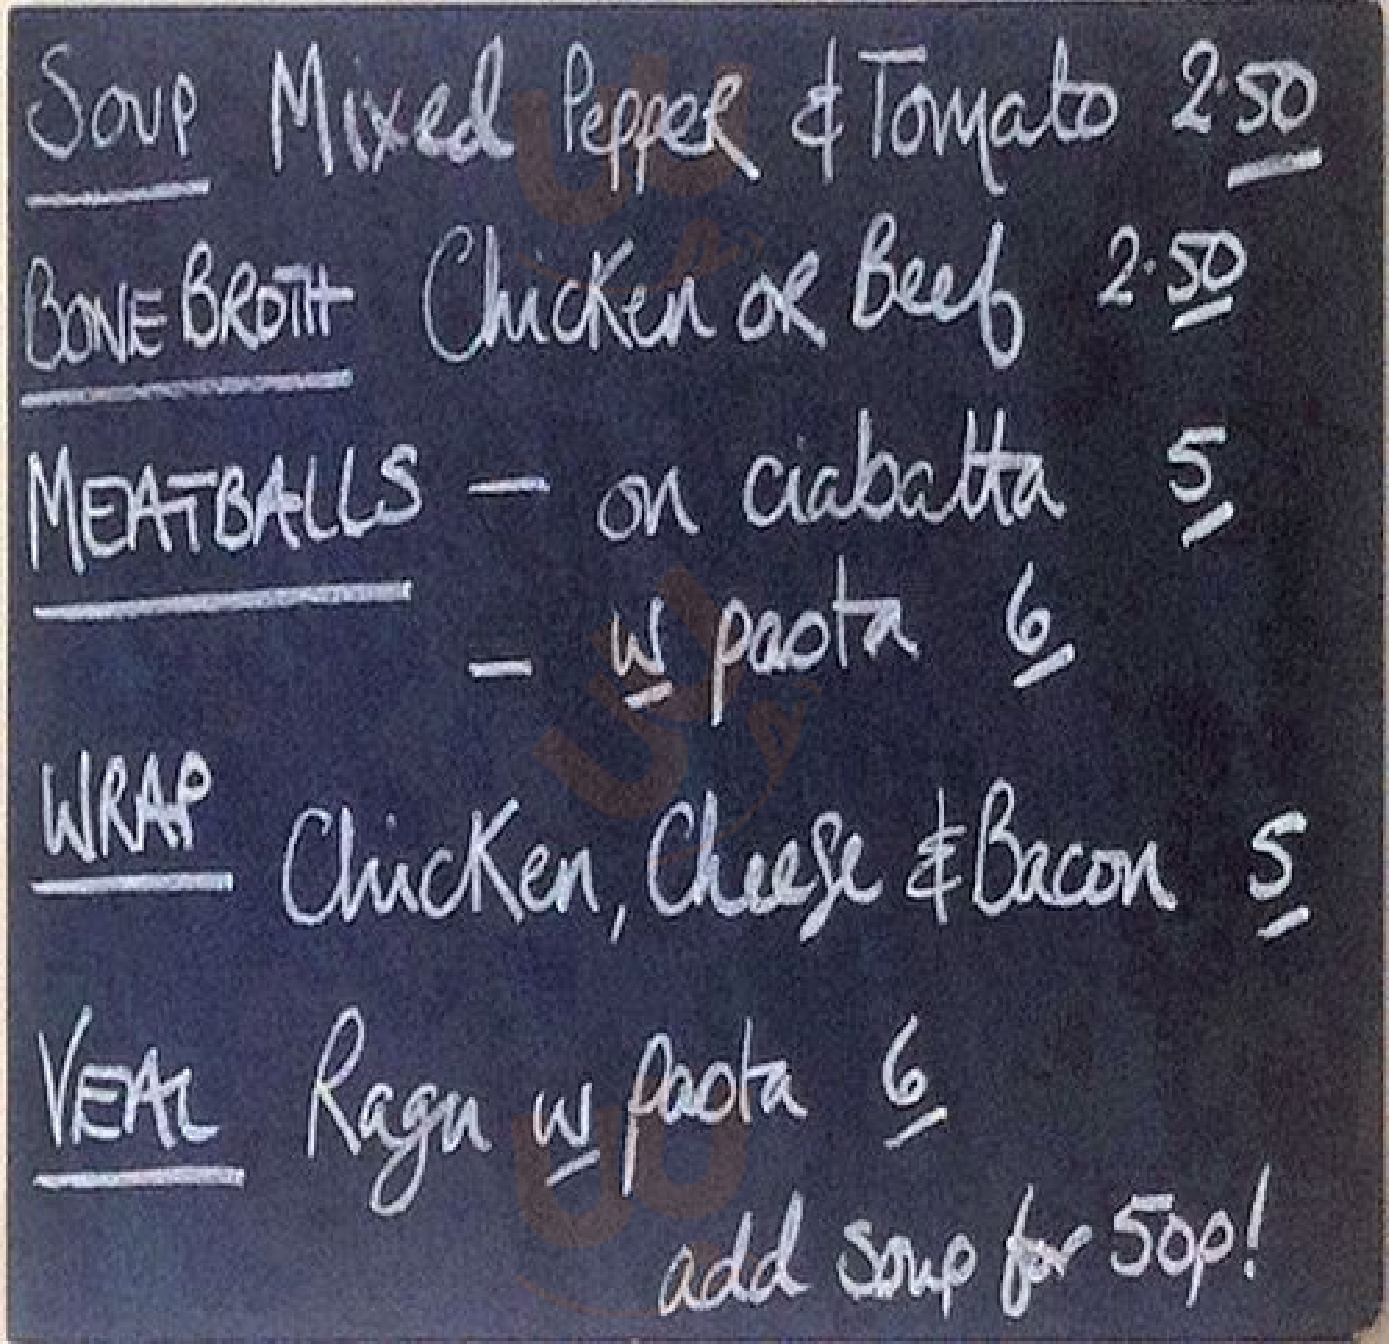 Soup Mixed Pepper & Tomato 2.50
BONE BROTH Chicken OR Beef 2.50
MEATBALLS – on ciabatta 5
– w pasta 6
WRAP Chicken, Cheese & Bacon 5
VEAL Ragu w pasta 6
add soup for 50p!